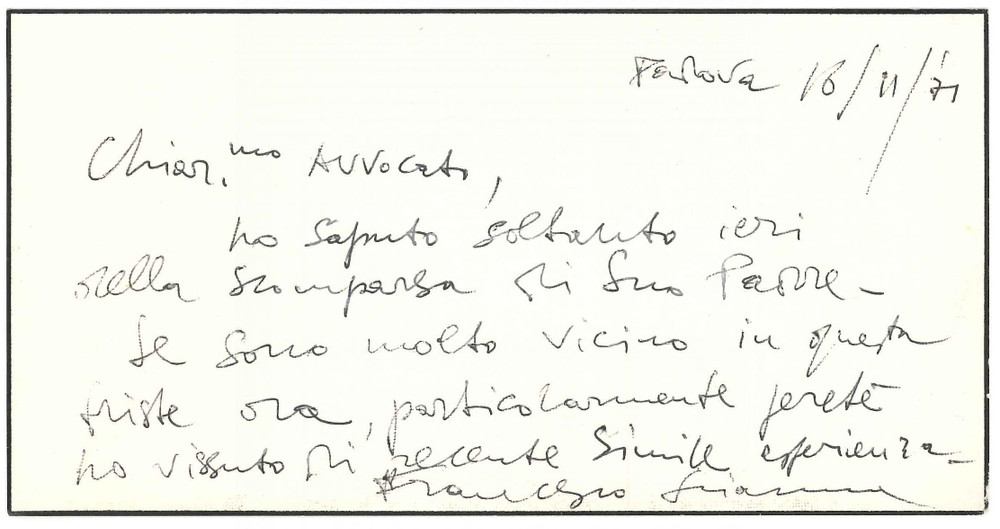 Padova 16/11/71
Chiar.mo Avvocato,
ho saputo soltanto ieri
della scomparsa di Suo Padre -
Le sono molto vicino in questa
triste ora, particolarmente perché
ho vissuto di recente simile esperienza -
Francesco